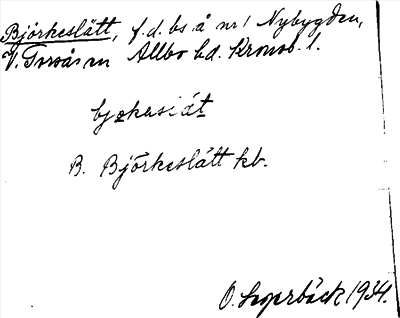 Björkeslätt, f.d. bs. å nr 1 Nybygden,
V. Torsås sn Allbo hd. Kronob. l.
B. Björkeslätt kb.
O. 1934.